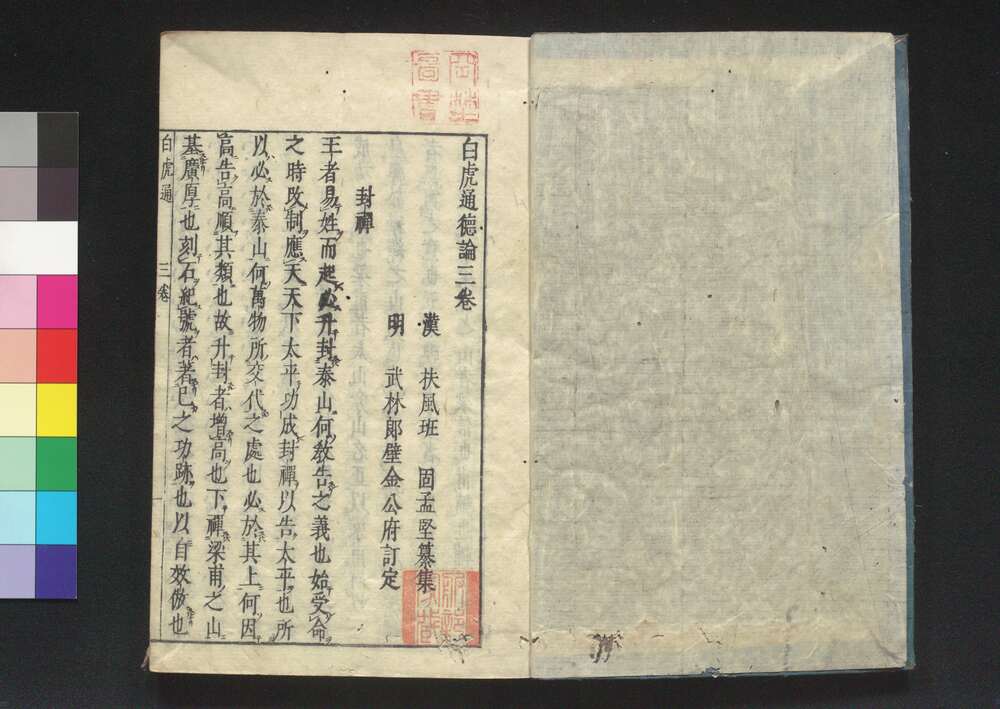 白虎通德論三卷
漢 扶風班 固孟堅纂集
明 武林郎壁金公府訂定
封禪
王者易姓而起必升封泰山何教告之義也始受命
之時改制應天天下太平功成封禪以告太平也所
以必於泰山何萬物所交代之處也必於其上何因
高告高順其類也故升封者增高也下禪梁甫之山
基廣厚也刻石紀號者著已之功跡也以自效倣也
白虎通 三卷